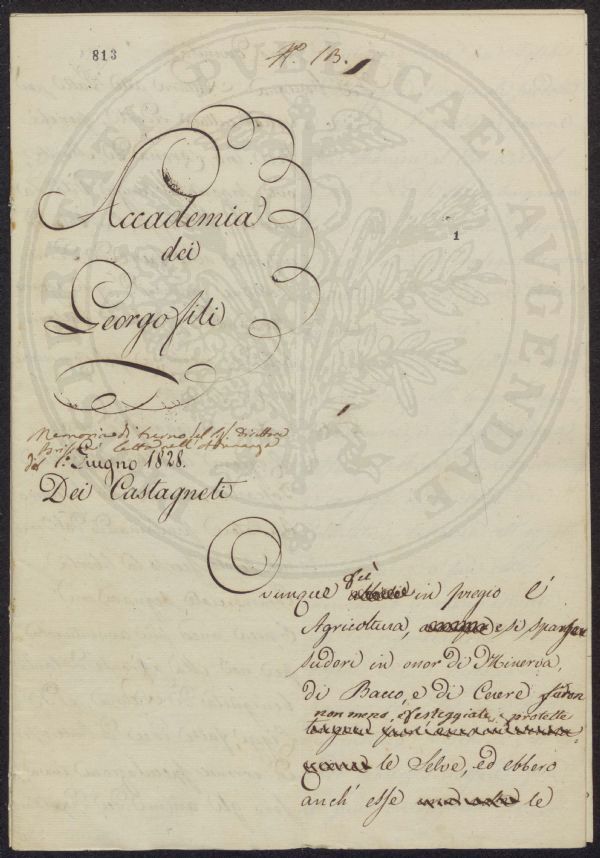 813
N.º 13.
Accademia
dei
Georgofili
1
Memoria di turno del Sig. Direttore
letta nell' Adunanza
del 1.º Giugno 1828.
Dei Castagneti
Ovunque fu' in pregio l'
Agricoltura, e si sparser
sudori in onor di Minerva,
di Bacco, e di Cerere furon
non meno festeggiate, protette
le Selve, ed ebbero
anch' esse le
PUBLICAE
AUGENDAE